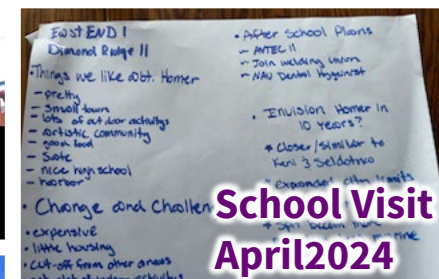 East END I
Dimond Ridge II
• Things we like abt. Homer
- pretty
- small town
- lots of outdoor activitys
- artistic community
- good food
- Safe
- nice high school
- harbor
• Change and Challen
• expensive
• little housing
• cut-off from other areas
• After School Plans
- AVTEC II
- Join welding union
- NAU Dental Hygienist
• Envision Homer in
10 years?
* Closer/similar to
Keni & Seldotna
* expanded limits
School Visit
April2024